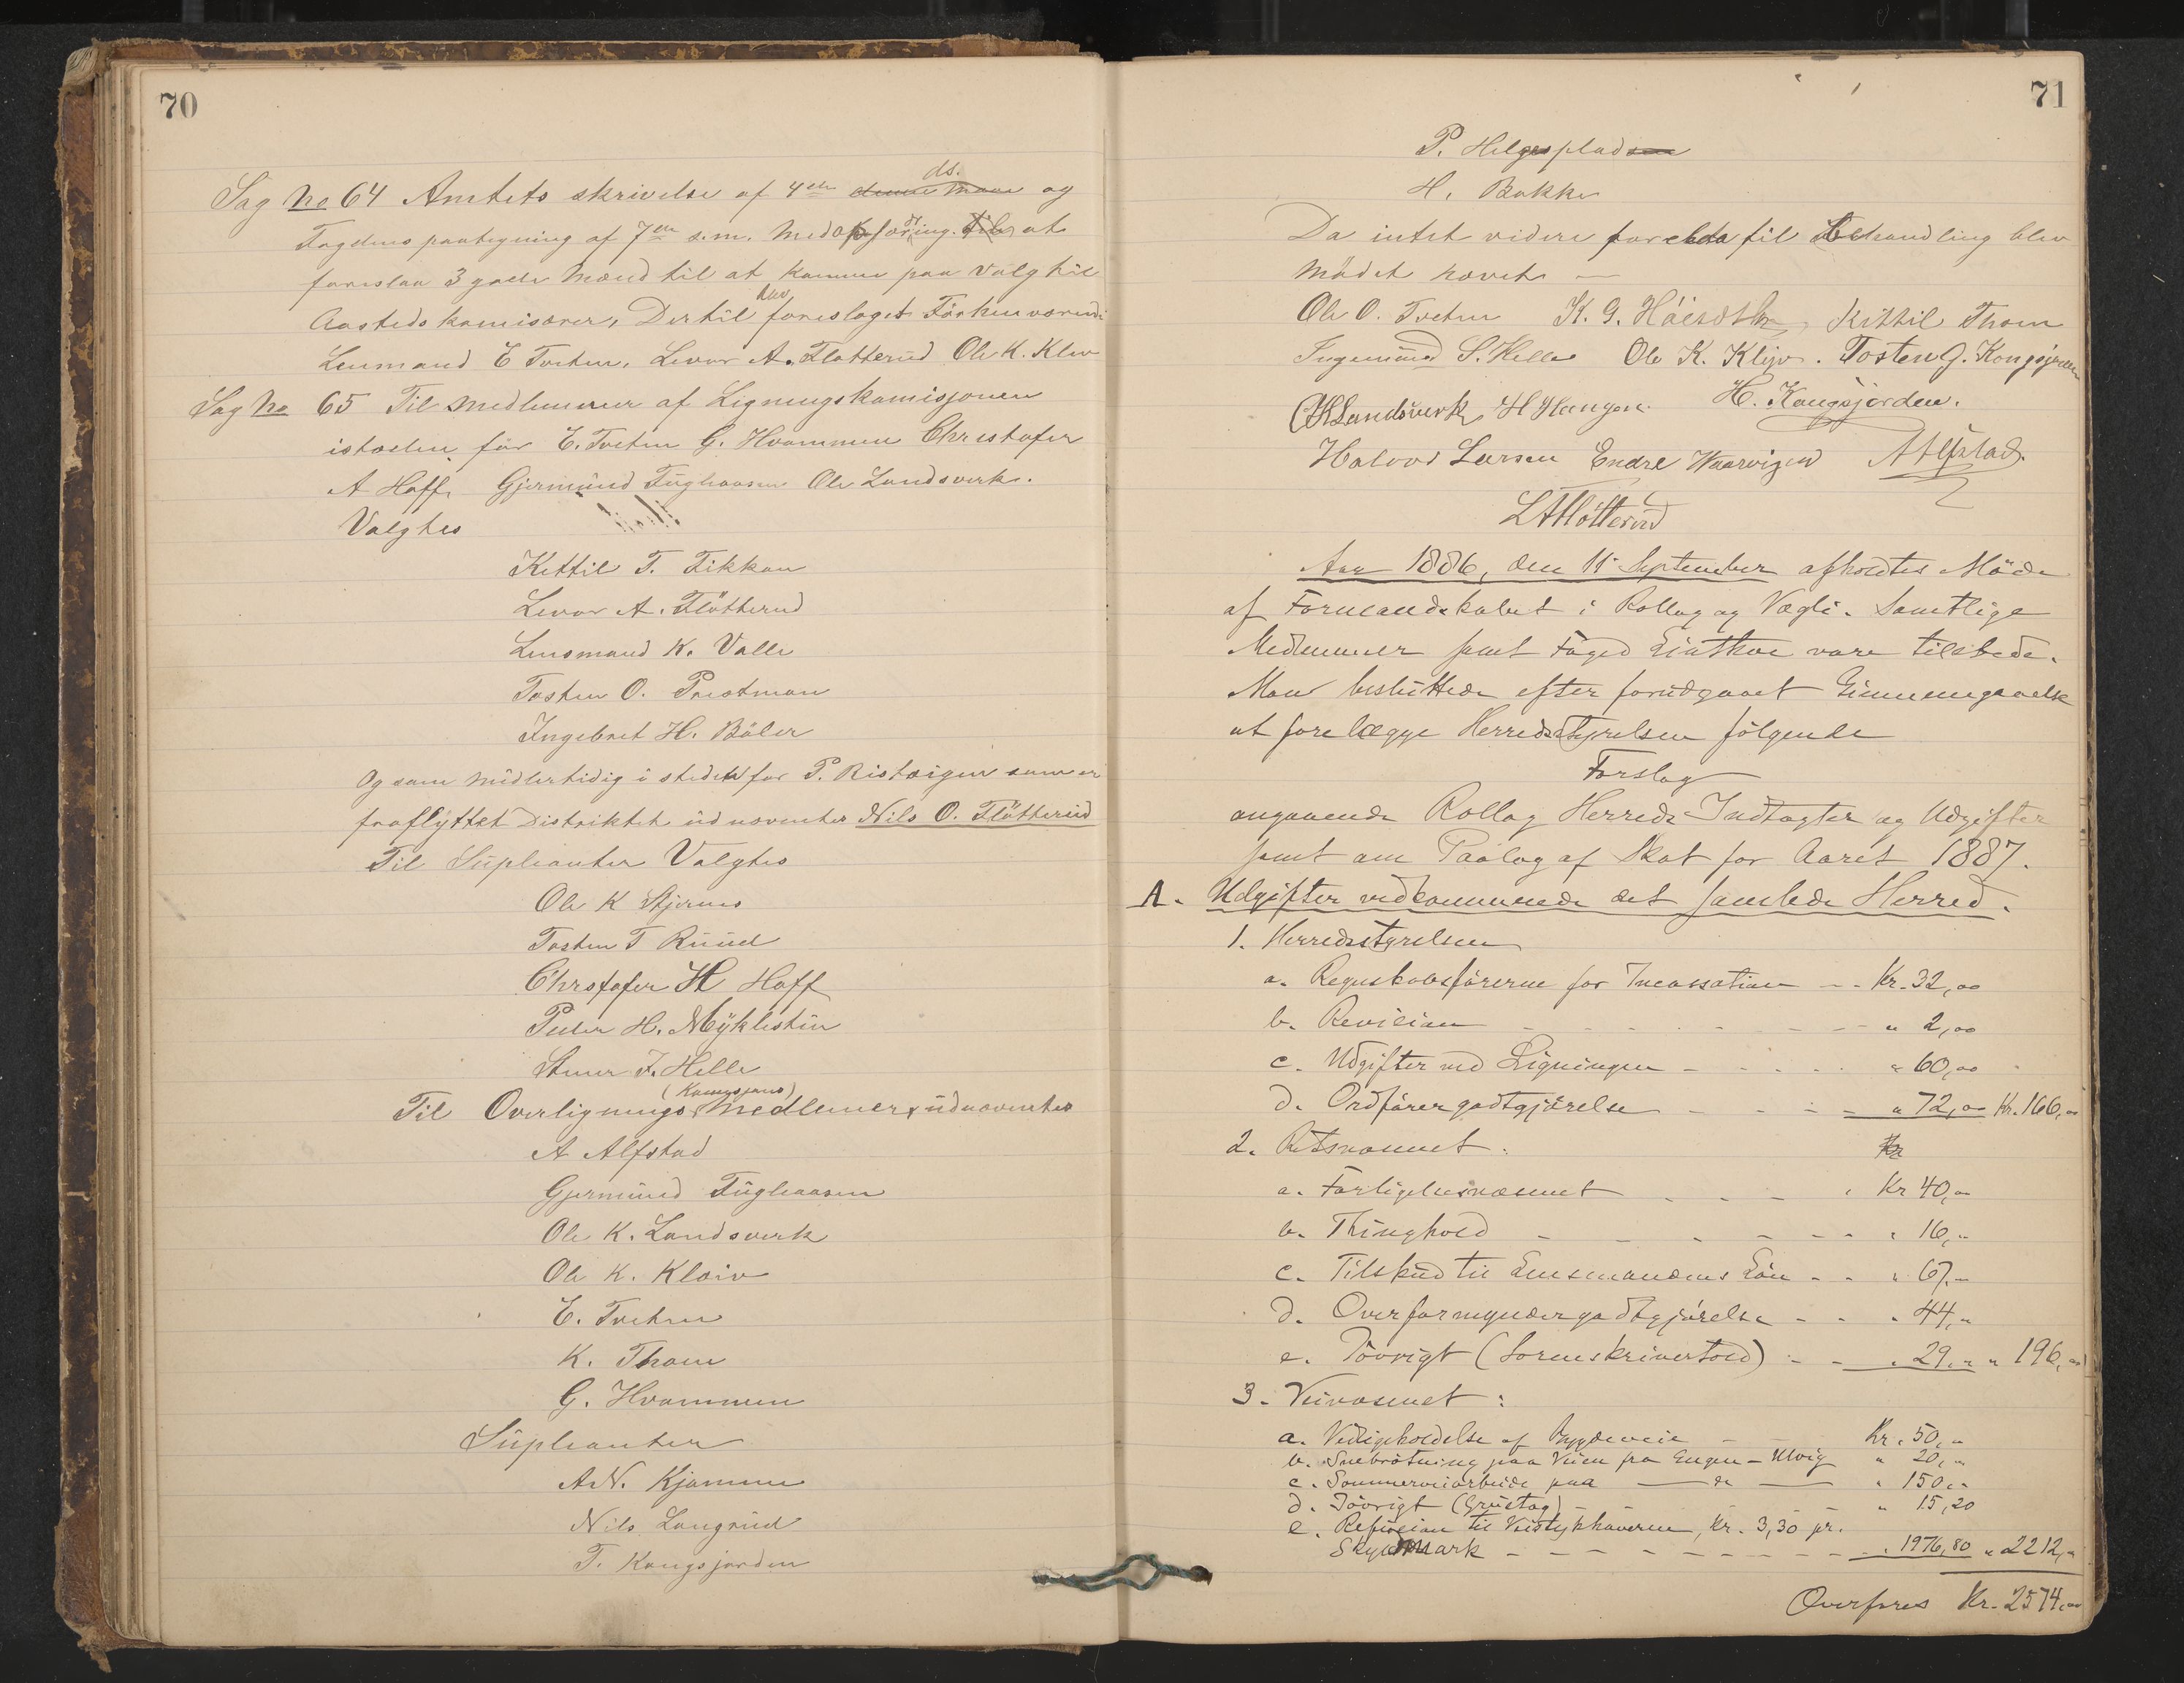 70
Sag No 64 Amtets skrivelse af 4de denne Maan ds. og
Fogdens paategning af 7de s.m. Med opfordring til at
foreslaa 3 gode Mænd til at komme paa valg til
Aasteds komisærer, Dertil blev foreslaget Førhenværende
Lensmand E Tveten, Levor A. Fløtterud Ole K. Klev
Sag No 65 Til Medlemmer af Ligningskomisjonen
istæden for E. Tveten G. Hvammen Christofer
A Hoff Gjermund Fuglaasen Ole Landsverk.
Valgtes
Kettil T. Fikkan
Levor A. Fløtterud
Lensmand K. Valle
Tosten O. Prestmon
Ingebret H. Bøler
Og som Midlertidig i stedet for P. Risteigen som er
fraflyttet Distriktet udnævntes Nils O. Fløtterud
Til Supleanter Valgtes
Ole K Stjernes
Tosten T Ruud
Chrstofer H Hoff
Peder H. Myklestun
Stener J. Helle
Til Overlignings (Komisjons) Medlemer udnævntes
A Alfstad
Gjermund Fuglaasen
Ole K. Landsverk
Ole K. Kleiv
E. Tveten
K. Thom
G. Hvammen
Supleanter
A.N. Kjømme
Nils Langrud
T. Kongsjorden
71
P. Helgesplads
H. Bakke
Da intet videre forelda til Behandling blev
Mødet hævet —
Ole O. Tveten K. G. Kittil Thom
Ingemund S. Helle Ole K. Klejv. Tosten G. Kongsjorden
Landsverk H Haugen H. Kongsjorden.
Halvor Larsen Endre Waarvigen A Alfstad.
L A Fløtterud
Aar 1886, den 11 September afholdtes Møde
af Formandskabet i Rollag og Vægli. Samtlige
Medlemmer samt Foged Einthoe vare tilstede.
Man besluttede efter forudgaaet Gjennemgaaelse
at forelægge Herredsstyrelsen følgende
Forslag
angaaende Rollag Herreds Indtægter og Udgifter
samt om Paalæg af Skat for Aaret 1887.
A. Udgifter vedkommende det samlede Herred.
1. Herredsstyrelsen
a. Regnskabsførerne for Incassation - - Kr. 32,00
b. Revision - - - - - - " 2,00
c. Udgifter ved Ligningen - - - - " 60,00
d. Ordførergodtgjørelse - - - - " 72,00 Kr. 166,00
2. Retsvæsenet. Kr
a. Forligelsesvæsenet - - - - Kr 40,00
b. Thinghold - - - - - - " 16,"
c. Tilskud til Lensmandens Løn - - " 67,"
d. Overformyndergodtgjørelse - - " 44,"
e. Iøvrigt (Sorenskrivertold) - - " 29," " 196,00
3. Veivæsenet:
a. Vedligeholdelse af Bygdeveie - - Kr. 50,"
b. Snebrøtning paa Veien fra Engen - Ulvig " 20,"
c. Sommerveiarbeide paa — do — " 150,"
d. Iøvrigt (Grustag) - - - " 15,20
e. Refusion til Veistykhaverne, Kr. 3,30 pr.
Skyldmark - - - - - - - - " 1976,80 " 2212,"
Overføres Kr. 2574,00